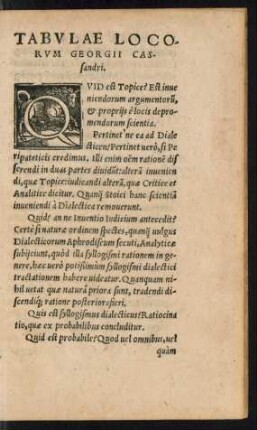 TABVLAE LOCO-
RVM GEORGII CAS-
sandri.
QVID est Topice? Est inue
niendorum argumentorũ,
& proprijs è locis depro-
mendorum scientia.
Pertinet ne ea ad Diale
cticen? Pertinet uerò, si Pe
ripateticis credimus. Illi enim oẽm rationẽ di
sserendi in duas partes diuidũt: alterã inuenien
di, quæ Topice: iudicandi alterã, quæ Critice et
Analitice dicitur. Quanq̃ Stoici hanc scientiã
inueniendi à Dialectica remouerunt.
Quid? an ne Inuentio Iudicium antecedit?
Certè si naturæ ordinem spectes, quanq̃ uulgus
Dialecticorum Aphrodisęum secuti, Analyticæ
subijciunt, quòd illa syllogismi rationem in ge-
nere, hæc uerò potissimùm syllogismi dialectici
tractationem habere uideatur. Quanquam ni-
hil uetat quæ naturâ priora sunt, tradendi di-
scendiq́; ratione posteriora fieri.
Quis est syllogismus dialecticus? Ratiocina
tio, quæ ex probabilibus concluditur.
Quid est probabile? Quod uel omnibus, uel
quàm